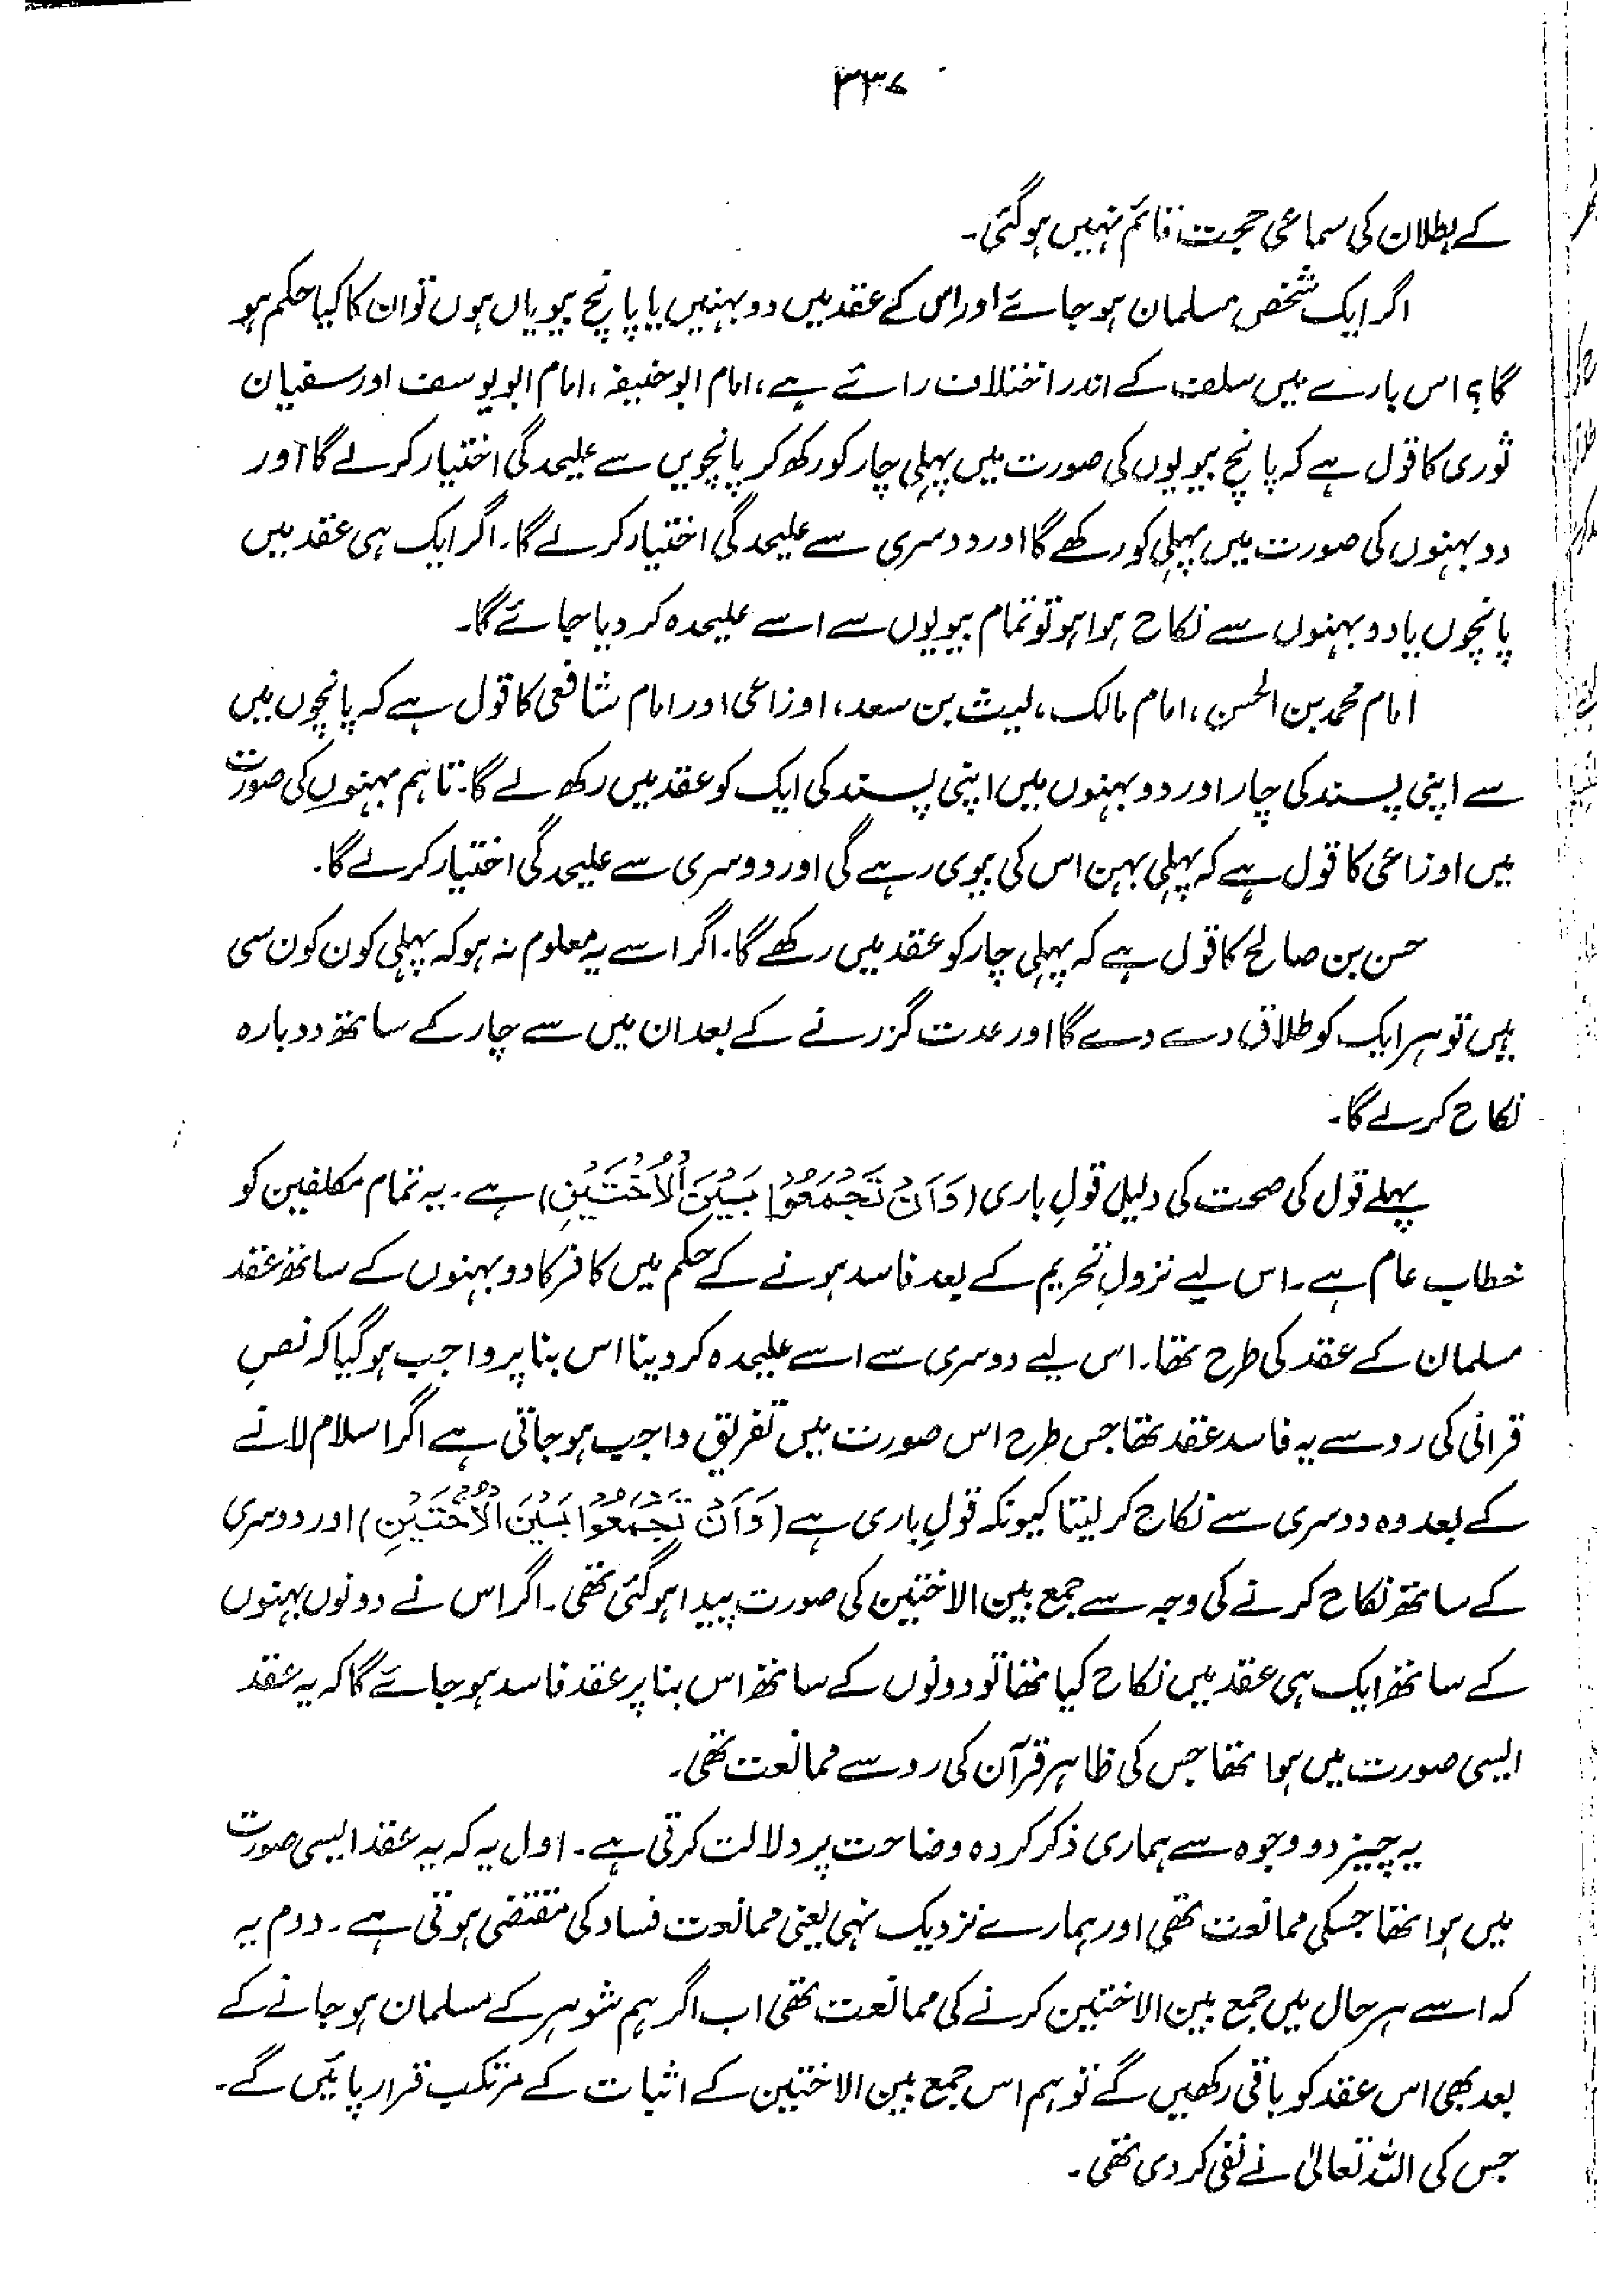 ۳۳۷
کے بطلان کی سماعی حجت قائم نہیں ہوگئی۔
اگر ایک شخص مسلمان ہو جائے اور اس کے عقد میں دو بہنیں یا پانچ بیویاں ہوں تو ان کا کیا حکم ہو
گا؟ اس بارے میں سلف کے اندر اختلاف رائے ہے، امام ابوحنیفہ، امام ابو یوسف اور سفیان
ثوری کا قول ہے کہ پانچ بیویوں کی صورت میں پہلی چار کو رکھ کر پانچویں سے علیحدگی اختیار کرلے گا اور
دو بہنوں کی صورت میں پہلی کو رکھے گا اور دوسری سے علیحدگی اختیار کرلے گا۔ اگر ایک ہی عقد میں
پانچوں یا دو بہنوں سے نکاح ہوا ہو تو تمام بیویوں سے اسے علیحدہ کر دیا جائے گا۔
امام محمد بن الحسن، امام مالک، لیث بن سعد، اوزاعی اور امام شافعی کا قول ہے کہ پانچوں میں
سے اپنی پسند کی چار اور دو بہنوں میں اپنی پسند کی ایک کو عقد میں رکھ لے گا۔ تاہم بہنوں کی صورت
میں اوزاعی کا قول ہے کہ پہلی بہن اس کی بیوی رہے گی اور دوسری سے علیحدگی اختیار کرلے گا۔
حسن بن صالح کا قول ہے کہ پہلی چار کو عقد میں رکھے گا۔ اگر اسے یہ معلوم نہ ہو کہ پہلی کون کون سی
ہیں تو ہر ایک کو طلاق دے دے گا اور عدت گزرنے کے بعد ان میں سے چار کے ساتھ دوبارہ
نکاح کرلے گا۔
پہلے قول کی صحت کی دلیل قولِ باری (وَاَنْ تَجْمَعُوْا بَیْنَ الْاُخْتَیْنِ) ہے۔ یہ تمام مکلفین کو
خطاب عام ہے۔ اس لیے نزولِ تحریم کے بعد فاسد ہونے کے حکم میں کافر کا دو بہنوں کے ساتھ عقد
مسلمان کے عقد کی طرح تھا۔ اس لیے دوسری سے اسے علیحدہ کر دینا اس بنا پر واجب ہوگیا کہ نصِ
قرآنی کی رو سے یہ فاسد عقد تھا جس طرح اس صورت میں تفریق واجب ہو جاتی ہے اگر اسلام لانے
کے بعد وہ دوسری سے نکاح کر لیتا کیونکہ قولِ باری ہے (وَاَنْ تَجْمَعُوْا بَیْنَ الْاُخْتَیْنِ) اور دوسری
کے ساتھ نکاح کرنے کی وجہ سے جمع بین الاختین کی صورت پیدا ہوگئی تھی۔ اگر اس نے دونوں بہنوں
کے ساتھ ایک ہی عقد میں نکاح کیا تھا تو دونوں کے ساتھ اس بنا پر عقد فاسد ہو جائے گا کہ یہ عقد
ایسی صورت میں ہوا تھا جس کی ظاہر قرآن کی رو سے ممانعت تھی۔
یہ چیز دو وجوہ سے ہماری ذکر کردہ وضاحت پر دلالت کرتی ہے۔ اول یہ کہ یہ عقد ایسی صورت
میں ہوا تھا جسکی ممانعت تھی اور ہمارے نزدیک نہی یعنی ممانعت فساد کی مقتضی ہوتی ہے۔ دوم یہ
کہ اسے ہر حال میں جمع بین الاختین کرنے کی ممانعت تھی اب اگر ہم شوہر کے مسلمان ہو جانے کے
بعد بھی اس عقد کو باقی رکھیں گے تو ہم اس جمع بین الاختین کے اثبات کے مرتکب قرار پائیں گے۔
جس کی اللہ تعالیٰ نے نفی کر دی تھی۔